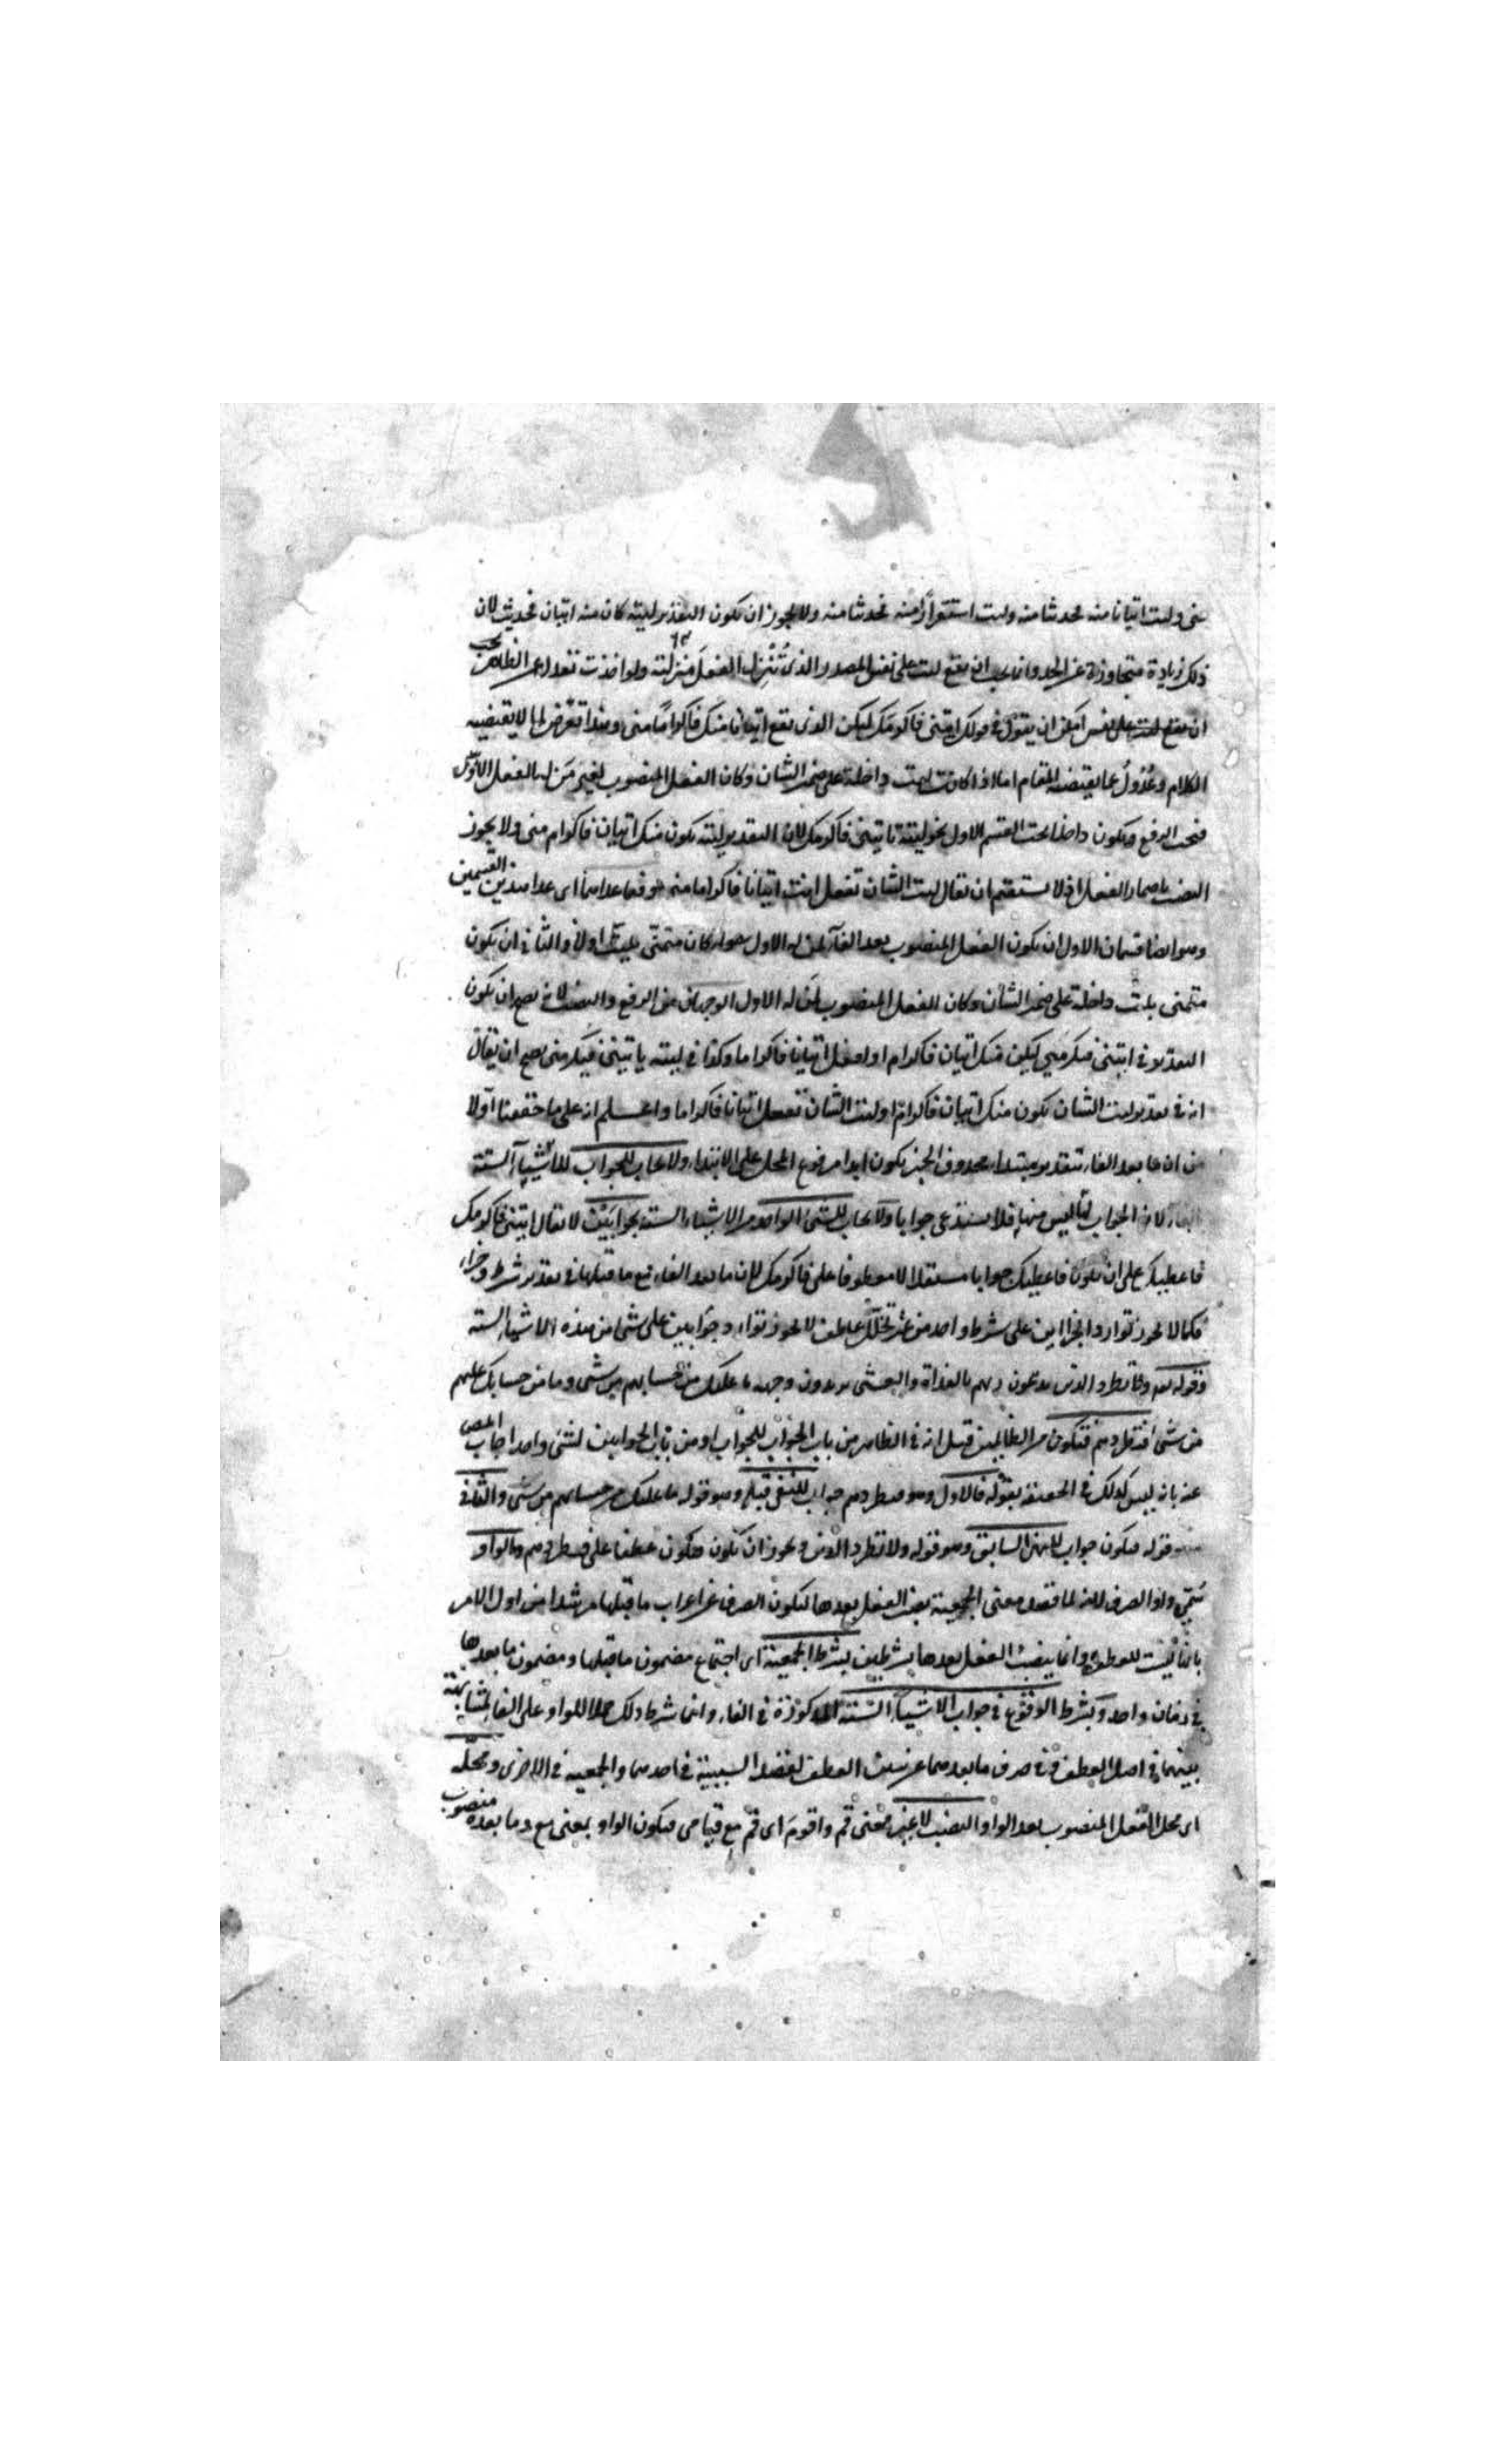 شى وليت اتيانا منه فحديثا منه وليت استقرارا منه فحديثا منه ولا يجوز ان يكون التقدير ليته كان منه اتيان فحديث لان
ذلك زيادة متجاوزة عن الحد وانما يجب ان تقع ليت على نفس المصدر الذى تُنزل الفعل منزلته ولو اخذت تعدل عن الظاهر
ان يقول فى قولك ايتنى فاكرمك ليكن الذى يقع اتيانا منك فاكراما منى وهذا تعرّض لما لا يقتضيه
الكلام وعُدُول عما يقتضيه المقام اما اذا كانت ليت داخلة على ضمير الشان وكان الفعل المنصوب لغير مَن له الفعل الاول
فيجب الرفع ويكون داخلا تحت القسم الاول نحو ليته تاتينى فاكرمك لان التقدير ليته يكون منك اتيان فاكرام منى ولا يجوز
النصب باضمار الفعل اذ لا يستقيم ان يقال ليت الشان تفعل انت اتيانا فاكراما منه فيما عداهما اى عدا هذين القسمين
وهو ايضا قسمان الاول ان يكون الفعل المنصوب بعد الفاء لمن له الاول كان متمنّى بليت اولا والثانى ان يكون
متمنى بليت داخلة على ضمير الشان وكان الفعل المنصوب لمن له الاول الوجهان من الرفع والنصب لانه يصح ان يكون
التقدير فى ايتنى فيكرمنى ليكن منك اتيان فاكرام او افعل اتيانا فاكراما وكذا فى ليته ياتينى فيكرمنى يصح ان يقال
انه فى تقدير ليت الشان يكون منك اتيان فاكرام او ليت الشان تفعل اتيانا فاكراما واعلم انه على ما حققنا اولا
من ان ما بعد الفاء بتقدير مبتداء محذوف الخبر يكون ابدا مرفوع المحل على الابتداء ولا يجاب الجواب للاشياء الستة
لان الجواب ليس منها فلا يستدعى جوابا ولا يجاب للشئ الواحد من الاشياء الستة بجوابَيْن لا يقال ايتنى فاكرمك
فاعطيك على ان يكون فاعطيك جوابا مستقلا لا معطوفا على فاكرمك لان ما بعد الفاء مع ما قبلها فى تقدير شرط وجزاء
فكما لا يجوز توارد الجزاين على شرط واحد من غير تخلّل عاطف لا يجوز توارد جوابين على شئ من هذه الاشياء الستة
وقوله تعالى ولا تطرد الذين يدعون ربهم بالغداة والعشى يريدون وجهه ما عليك من حسابهم من شئ وما من حسابك عليهم
من شئ فتطردهم فتكون من الظالمين قيل انه فى الظاهر من باب الجواب للجواب او من باب الجوابين لشئ واحد اجاب المص
عنه بانه ليس كذلك فى الحقيقة بقوله فالاول وهو فتطردهم جواب للنفى قبله وهو قوله ما عليك من حسابهم من شئ والثانى
وهو قوله فتكون جواب للنهى السابق وهو قوله ولا تطرد الذين ويجوز ان يكون فتكون عطفا على فتطردهم والواو
سُمّى واو الصرف لانه لما قصد معنى الجمعية نصب الفعل بعدها ليكون الصرف عن اعراب ما قبلها مرشدا من اول الامر
بانها ليست للعطف وانما ينصب الفعل بعدها بشرطين بشرط الجمعية اى اجتماع مضمون ما قبلها ومضمون ما بعدها
فى زمان واحد وبشرط الوقوع فى جواب الاشياء الستة المذكورة فى الفاء وانما شرط ذلك حملا للواو على الفاء لمشابهة
بينهما فى اصل العطف وفى صرف ما بعدهما عن سنن العطف لقصد السببية فى احدهما والجمعية فى الاخرى ومحله
اى محل الفعل المنصوب بعد الواو النصب لا غير فمعنى قم واقومَ اى قم مع قيامى فيكون الواو بمعنى مع وما بعده منصوب